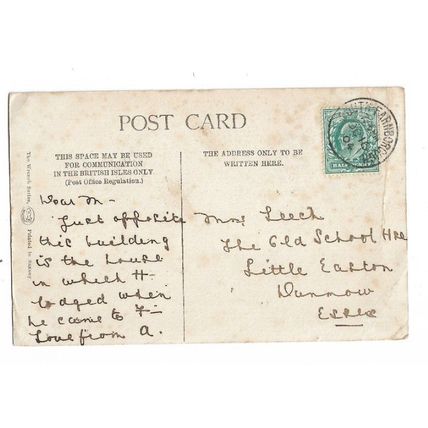 POST CARD
THIS SPACE MAY BE USED
FOR COMMUNICATION
IN THE BRITISH ISLES ONLY
(Post Office Regulation.)
THE ADDRESS ONLY TO BE
WRITTEN HERE.
The Wrench Series, Printed in Saxony
Dear M-
Just opposite
this building
is the house
in which H-
lodged when
he came to F-
Love from A.
Leech
The Old School Hse
Little Easton
Dunmow
Essex
HALF